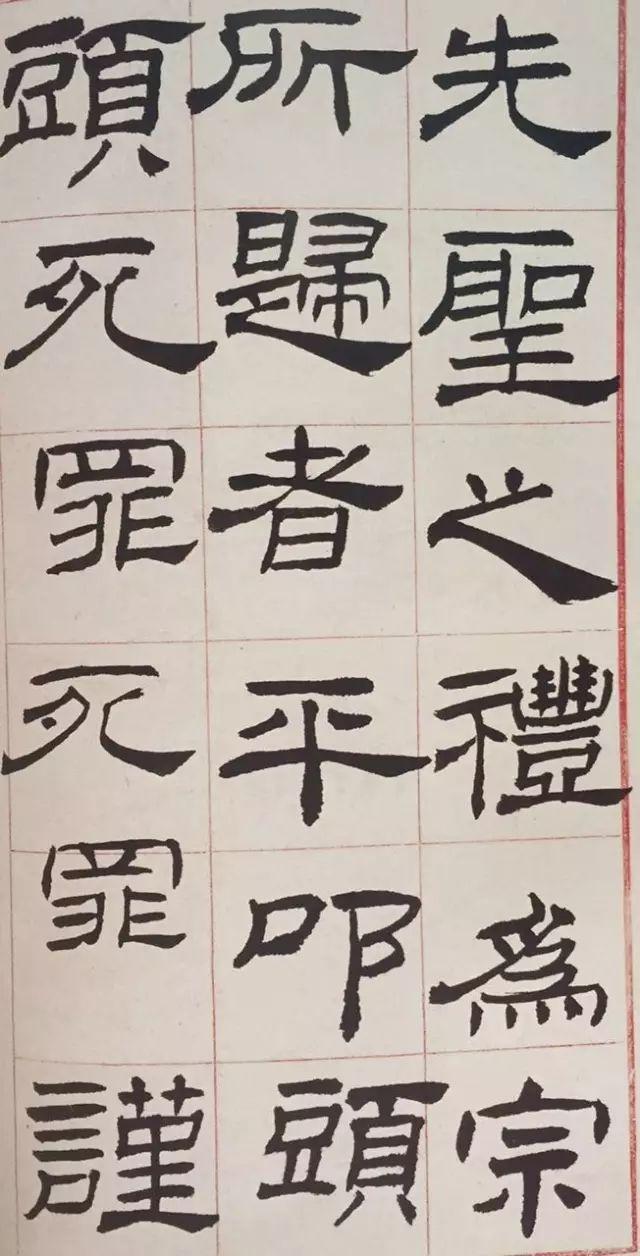 先聖之禮為宗
所歸者平叩頭
頭死罪死罪謹